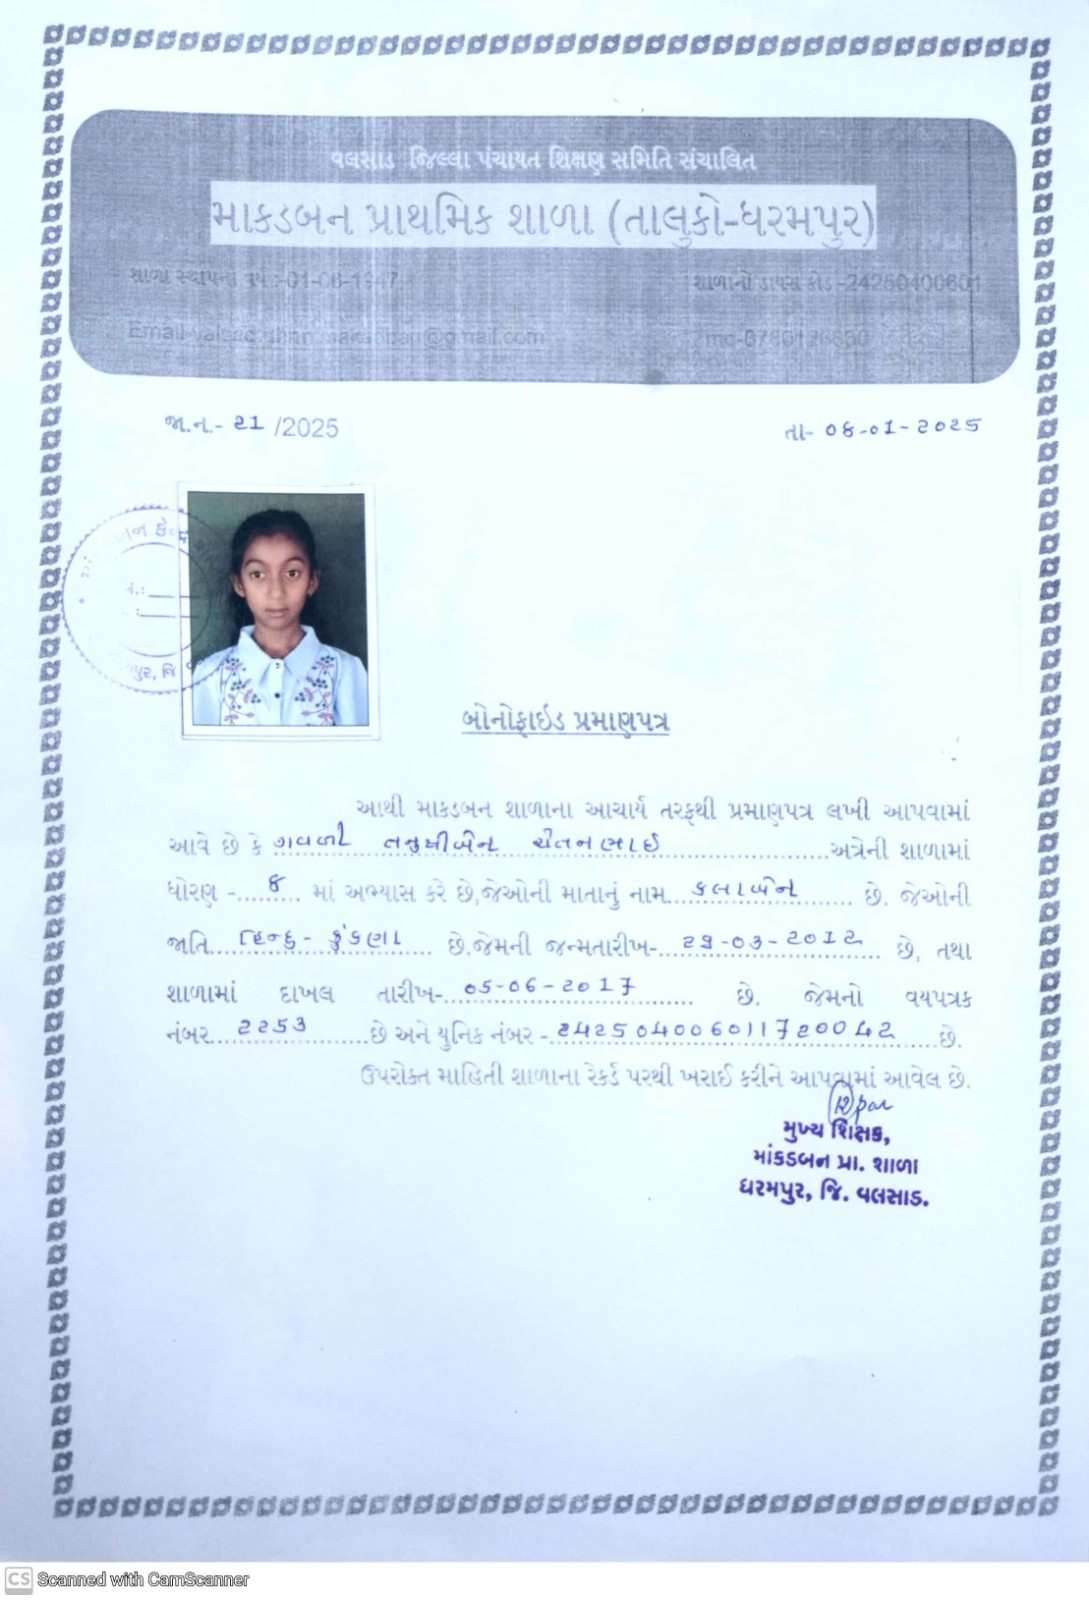 વલસાડ જિલ્લા પંચાયત શિક્ષણ સમિતિ સંચાલિત
માકડબન પ્રાથમિક શાળા (તાલુકો-ધરમપુર)
શાળા સ્થાપના વર્ષ :-01-08-1947
શાળાનો ડાયસ કોડ -24250400601
જા.ન.- 21 /2025
તા- 08-01-2025
બોનોફાઇડ પ્રમાણપત્ર
આથી માકડબન શાળાના આચાર્ય તરફથી પ્રમાણપત્ર લખી આપવામાં
આવે છે કે ગવળી તનુશ્રીબેન ચેતનભાઈ અત્રેની શાળામાં
ધોરણ - ૪ માં અભ્યાસ કરે છે,જેઓની માતાનું નામ કલાબેન છે. જેઓની
જાતિ હિન્દુ - કુંકણા છે.જેમની જન્મતારીખ- 29-03-2012 છે, તથા
શાળામાં દાખલ તારીખ- 05-06-2017 છે. જેમનો વયપત્રક
નંબર 2253 છે અને યુનિક નંબર - 242504006011720042 છે.
ઉપરોક્ત માહિતી શાળાના રેકર્ડ પરથી ખરાઈ કરીને આપવામાં આવેલ છે.
મુખ્ય શિક્ષક,
માંકડબન પ્રા. શાળા
ધરમપુર, જિ. વલસાડ.
CS Scanned with CamScanner